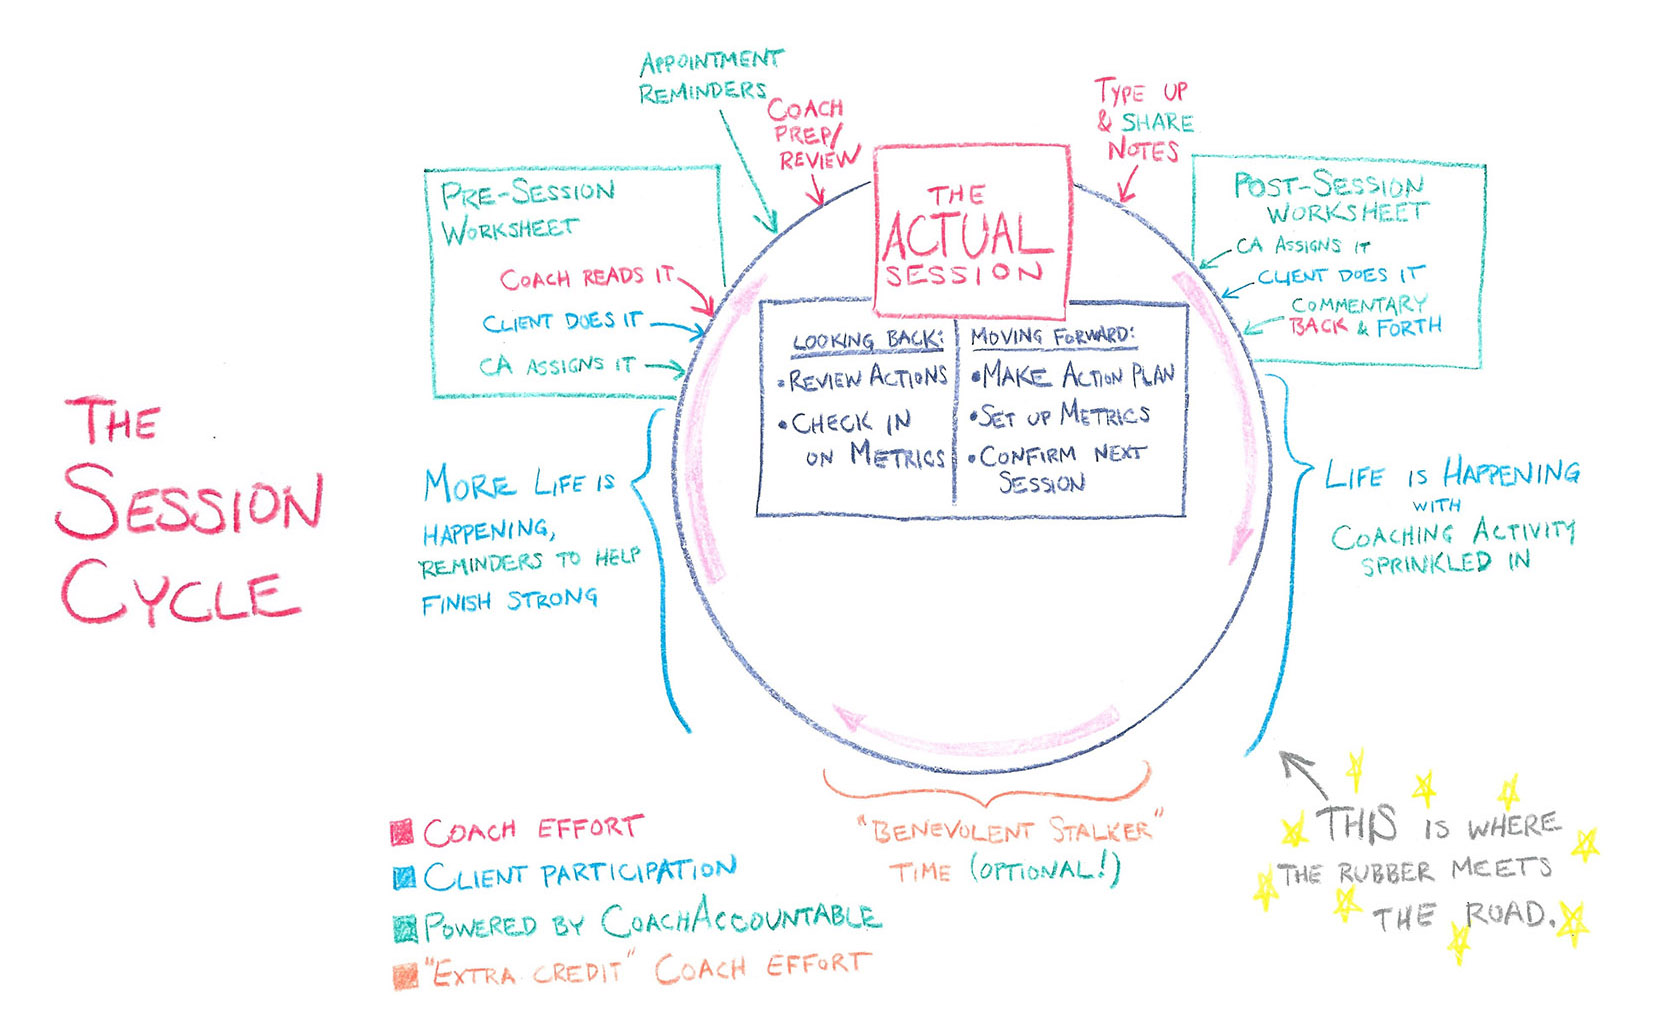 THE
SESSION
CYCLE
APPOINTMENT
REMINDERS
COACH
PREP/
REVIEW
TYPE UP
& SHARE
NOTES
PRE-SESSION
WORKSHEET
COACH READS IT
CLIENT DOES IT
CA ASSIGNS IT
THE
ACTUAL
SESSION
LOOKING BACK:
•REVIEW ACTIONS
•CHECK IN
ON METRICS
MOVING FORWARD:
•MAKE ACTION PLAN
•SET UP METRICS
•CONFIRM NEXT
SESSION
POST-SESSION
WORKSHEET
CA ASSIGNS IT
CLIENT DOES IT
COMMENTARY
BACK & FORTH
MORE LIFE IS
HAPPENING,
REMINDERS TO HELP
FINISH STRONG
LIFE IS HAPPENING
WITH
COACHING ACTIVITY
SPRINKLED IN
"BENEVOLENT STALKER"
TIME (OPTIONAL!)
THIS IS WHERE
THE RUBBER MEETS
THE ROAD.
COACH EFFORT
CLIENT PARTICIPATION
POWERED BY COACHACCOUNTABLE
"EXTRA CREDIT" COACH EFFORT